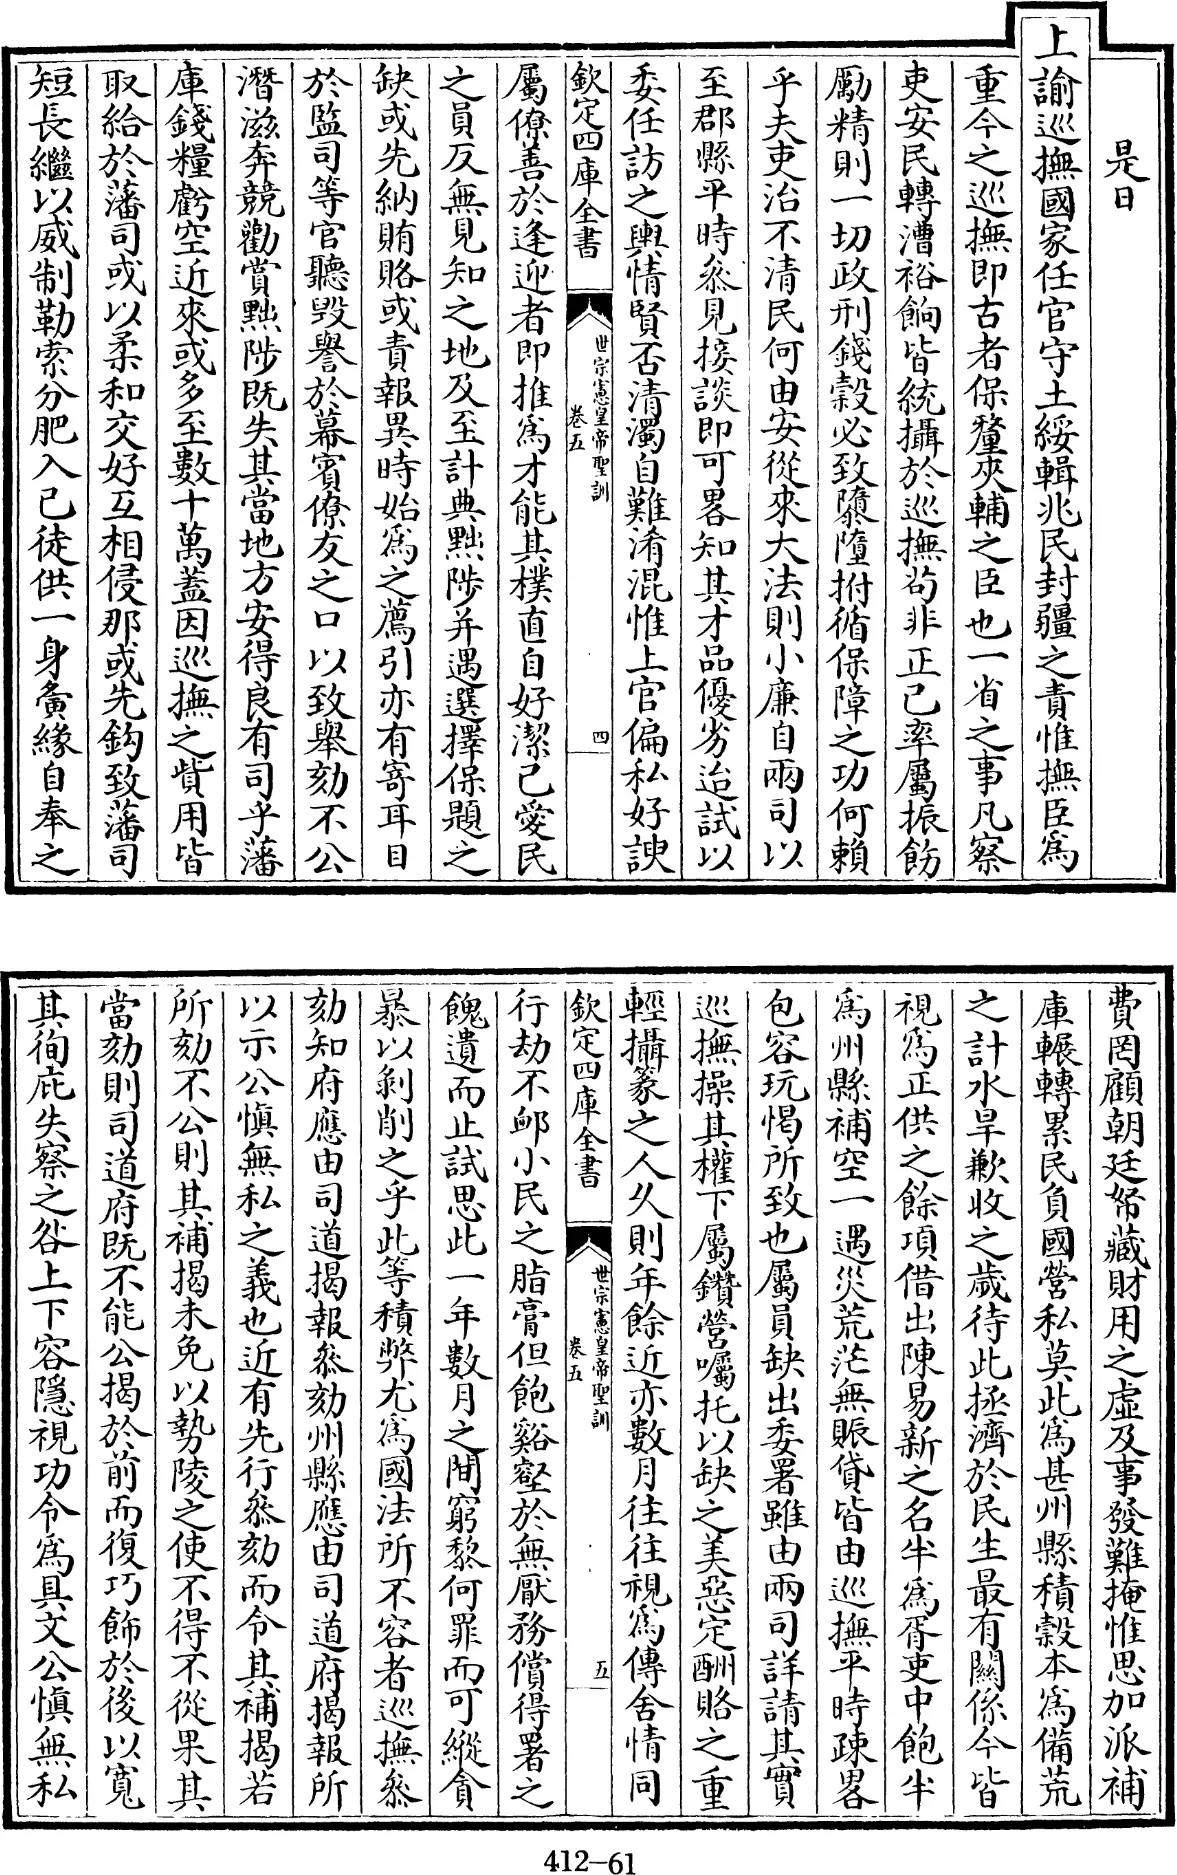 是日
上諭巡撫國家任官守土綏輯兆民封疆之責惟撫臣為
重今之巡撫即古者保釐夾輔之臣也一省之事凡察
吏安民轉漕裕餉皆統攝於巡撫茍非正己率屬振飭
勵精則一切政刑錢榖必致隳墮拊循保障之功何賴
乎夫吏治不清民何由安從來大法則小廉自兩司以
至郡縣平時叅見接談即可畧知其才品優劣迨試以
委任訪之輿情賢否清濁自難淆混惟上官偏私好諛
欽定四庫全書
世宗憲皇帝聖訓
卷五
四
屬僚善於逢迎者即推為才能其樸直自好潔己愛民
之員反無見知之地及至計典黜陟并遇選擇保題之
缺或先納賄賂或責報異時始為之薦引亦有寄耳目
於監司等官聽毀譽於幕賓僚友之口以致舉劾不公
潛滋奔競勸賞黜陟既失其當地方安得良有司乎藩
庫錢糧虧空近來或多至數十萬蓋因巡撫之貲用皆
取給於藩司或以柔和交好互相侵那或先鈎致藩司
短長繼以威制勒索分肥入己徒供一身夤緣自奉之
費罔顧朝廷帑藏財用之虛及事發難掩惟思加派補
庫輾轉累民負國營私莫此為甚州縣積榖本為備荒
之計水旱歉收之歲待此拯濟於民生最有關係今皆
視為正供之餘項借出陳易新之名半為胥吏中飽半
為州縣補空一遇災荒茫無賑貸皆由巡撫平時疎畧
包容玩愒所致也屬員缺出委署雖由兩司詳請其實
巡撫操其權下屬鑽營囑托以缺之美惡定酬賂之重
輕攝篆之人乆則年餘近亦數月往往視為傳舍情同
欽定四庫全書
世宗憲皇帝聖訓
卷五
五
行劫不䘏小民之脂膏但飽谿壑於無厭務償得署之
餽遺而止試思此一年數月之間窮黎何罪而可縱貪
暴以剝削之乎此等積弊尤為國法所不容者巡撫叅
劾知府應由司道揭報叅劾州縣應由司道府揭報所
以示公慎無私之義也近有先行叅劾而令其補揭若
所劾不公則其補揭未免以勢陵之使不得不從果其
當劾則司道府既不能公揭於前而復巧飾於後以寬
其徇庇失察之咎上下容隱視功令為具文公慎無私
412-61